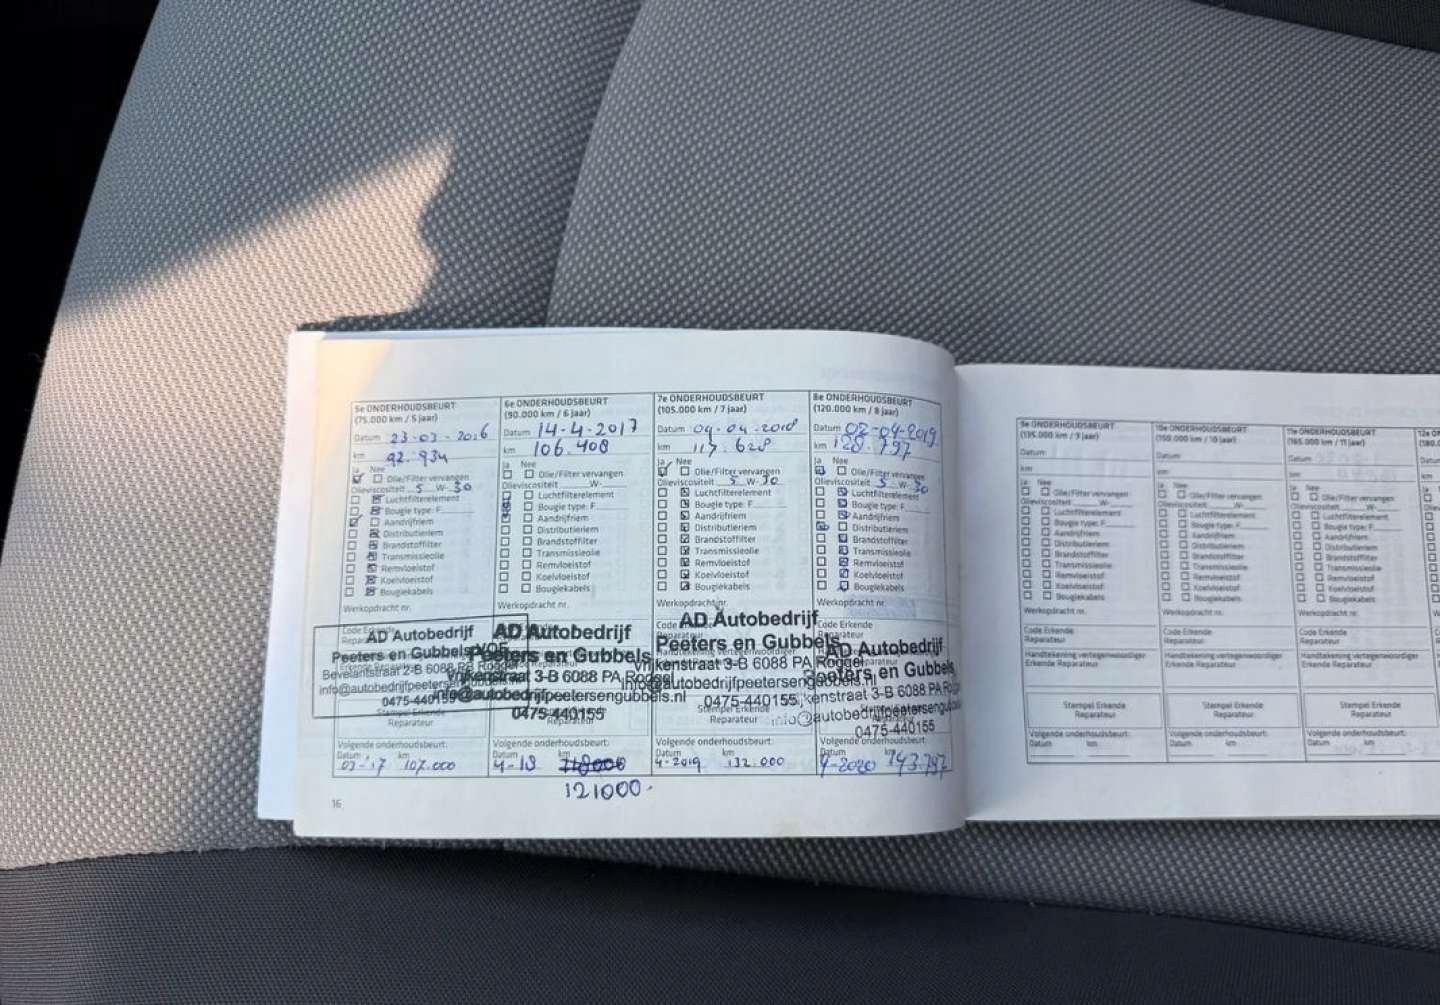 5e ONDERHOUDSBEURT
(75.000 km / 5 jaar)
Datum 23-03-2016
km 92.934
Ja Nee
Olie/Filter vervangen
Olieviscositeit 5 W-30
Luchtfilterelement
Bougie type: F
Aandrijfriem
Distributieriem
Brandstoffilter
Transmissieolie
Remvloeistof
Koelvloeistof
Bougiekabels
Werkopdracht nr.
Code Erkende
AD Autobedrijf
Peeters en Gubbels VOF
Bevelantstraat 2-B 6088 PA Roggel
0475-440155
Stempel Erkende
Reparateur
Volgende onderhoudsbeurt:
Datum km
03-'17 107.000
6e ONDERHOUDSBEURT
(90.000 km / 6 jaar)
Datum 14-4-2017
km 106.408
Ja Nee
Olie/Filter vervangen
Olieviscositeit W-
Luchtfilterelement
Bougie type: F
Aandrijfriem
Distributieriem
Brandstoffilter
Transmissieolie
Remvloeistof
Koelvloeistof
Bougiekabels
Werkopdracht nr.
AD Autobedrijf
Peeters en Gubbels
Vrijkenstraat 3-B 6088 PA Roggel
info@autobedrijfpeetersengubbels.nl
0475-440155
Reparateur
Volgende onderhoudsbeurt:
Datum km
4-18 118000
121000.
7e ONDERHOUDSBEURT
(105.000 km / 7 jaar)
Datum 04-04-2018
km 117.628
Ja Nee
Olie/Filter vervangen
Olieviscositeit 5 W-30
Luchtfilterelement
Bougie type: F
Aandrijfriem
Distributieriem
Brandstoffilter
Transmissieolie
Remvloeistof
Koelvloeistof
Bougiekabels
Werkopdracht nr.
AD Autobedrijf
Peeters en Gubbels
Vrijkenstraat 3-B 6088 PA Roggel
info@autobedrijfpeetersengubbels.nl
0475-440155
Stempel Erkende
Reparateur
Volgende onderhoudsbeurt:
Datum km
4-2019 132.000
8e ONDERHOUDSBEURT
(120.000 km / 8 jaar)
Datum 02-04-2019
km 128.797
Ja Nee
Olie/Filter vervangen
Olieviscositeit 5 W-30
Luchtfilterelement
Bougie type: F
Aandrijfriem
Distributieriem
Brandstoffilter
Transmissieolie
Remvloeistof
Koelvloeistof
Bougiekabels
Werkopdracht nr.
AD Autobedrijf
Peeters en Gubbels
kenstraat 3-B 6088 PA
0475-440155
Volgende onderhoudsbeurt:
Datum km
4-2020 143.797
16
9e ONDERHOUDSBEURT
(135.000 km / 9 jaar)
Datum
km
Ja Nee
Olie/Filter vervangen
Olieviscositeit W-
Luchtfilterelement
Bougie type: F
Aandrijfriem
Distributieriem
Brandstoffilter
Transmissieolie
Remvloeistof
Koelvloeistof
Bougiekabels
Werkopdracht nr.
Code Erkende
Reparateur
Handtekening vertegenwoordiger
Erkende Reparateur
Stempel Erkende
Reparateur
Volgende onderhoudsbeurt:
Datum km
10e ONDERHOUDSBEURT
(150.000 km / 10 jaar)
Datum
km
Ja Nee
Olie/Filter vervangen
Olieviscositeit W-
Luchtfilterelement
Bougie type: F
Aandrijfriem
Distributieriem
Brandstoffilter
Transmissieolie
Remvloeistof
Koelvloeistof
Bougiekabels
Werkopdracht nr.
Code Erkende
Reparateur
Handtekening vertegenwoordiger
Erkende Reparateur
Stempel Erkende
Reparateur
Volgende onderhoudsbeurt:
Datum km
11e ONDERHOUDSBEURT
(165.000 km / 11 jaar)
Datum
km
Ja Nee
Olie/Filter vervangen
Olieviscositeit W-
Luchtfilterelement
Bougie type: F
Aandrijfriem
Distributieriem
Brandstoffilter
Transmissieolie
Remvloeistof
Koelvloeistof
Bougiekabels
Werkopdracht nr.
Code Erkende
Reparateur
Handtekening vertegenwoordiger
Erkende Reparateur
Stempel Erkende
Reparateur
Volgende onderhoudsbeurt:
Datum km